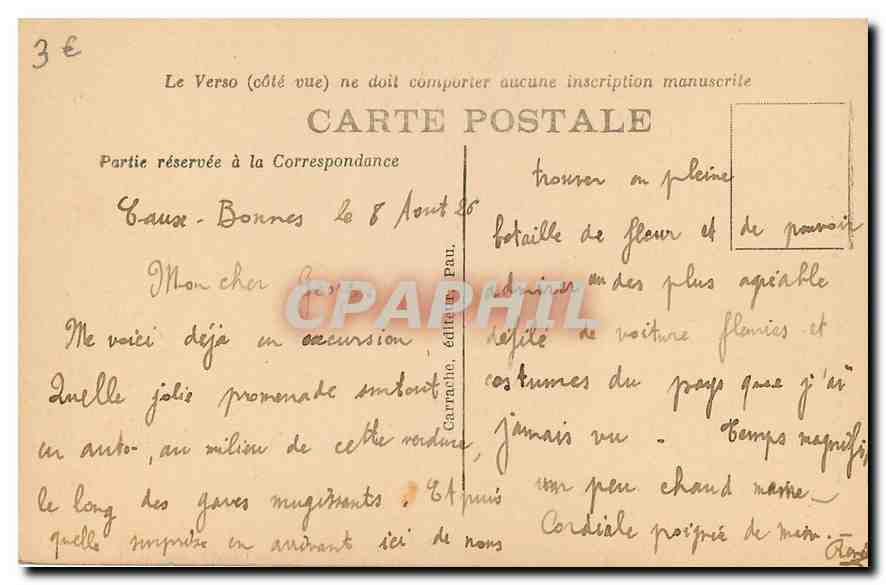 3 €
Le Verso (côté vue) ne doit comporter aucune inscription manuscrite
CARTE POSTALE
Partie réservée à la Correspondance
Eaux-Bonnes le 8 Aout 26
Mon cher
Me voici déjà en excursion
Quelle jolie promenade surtout
en auto, au milieu de cette verdure,
le long des gaves mugissants. Et puis
quelle surprise en arrivant ici de nous
trouver en pleine
bataille de fleur et de pouvoir
admirer un des plus agréable
défilé de voiture fleuries et
costumes du pays que j'ai
jamais vu - Temps magnifi,
un peu chaud même -
Cordiale poignée de main. -
René
Carrache, éditeur, Pau.
CPAPHIL